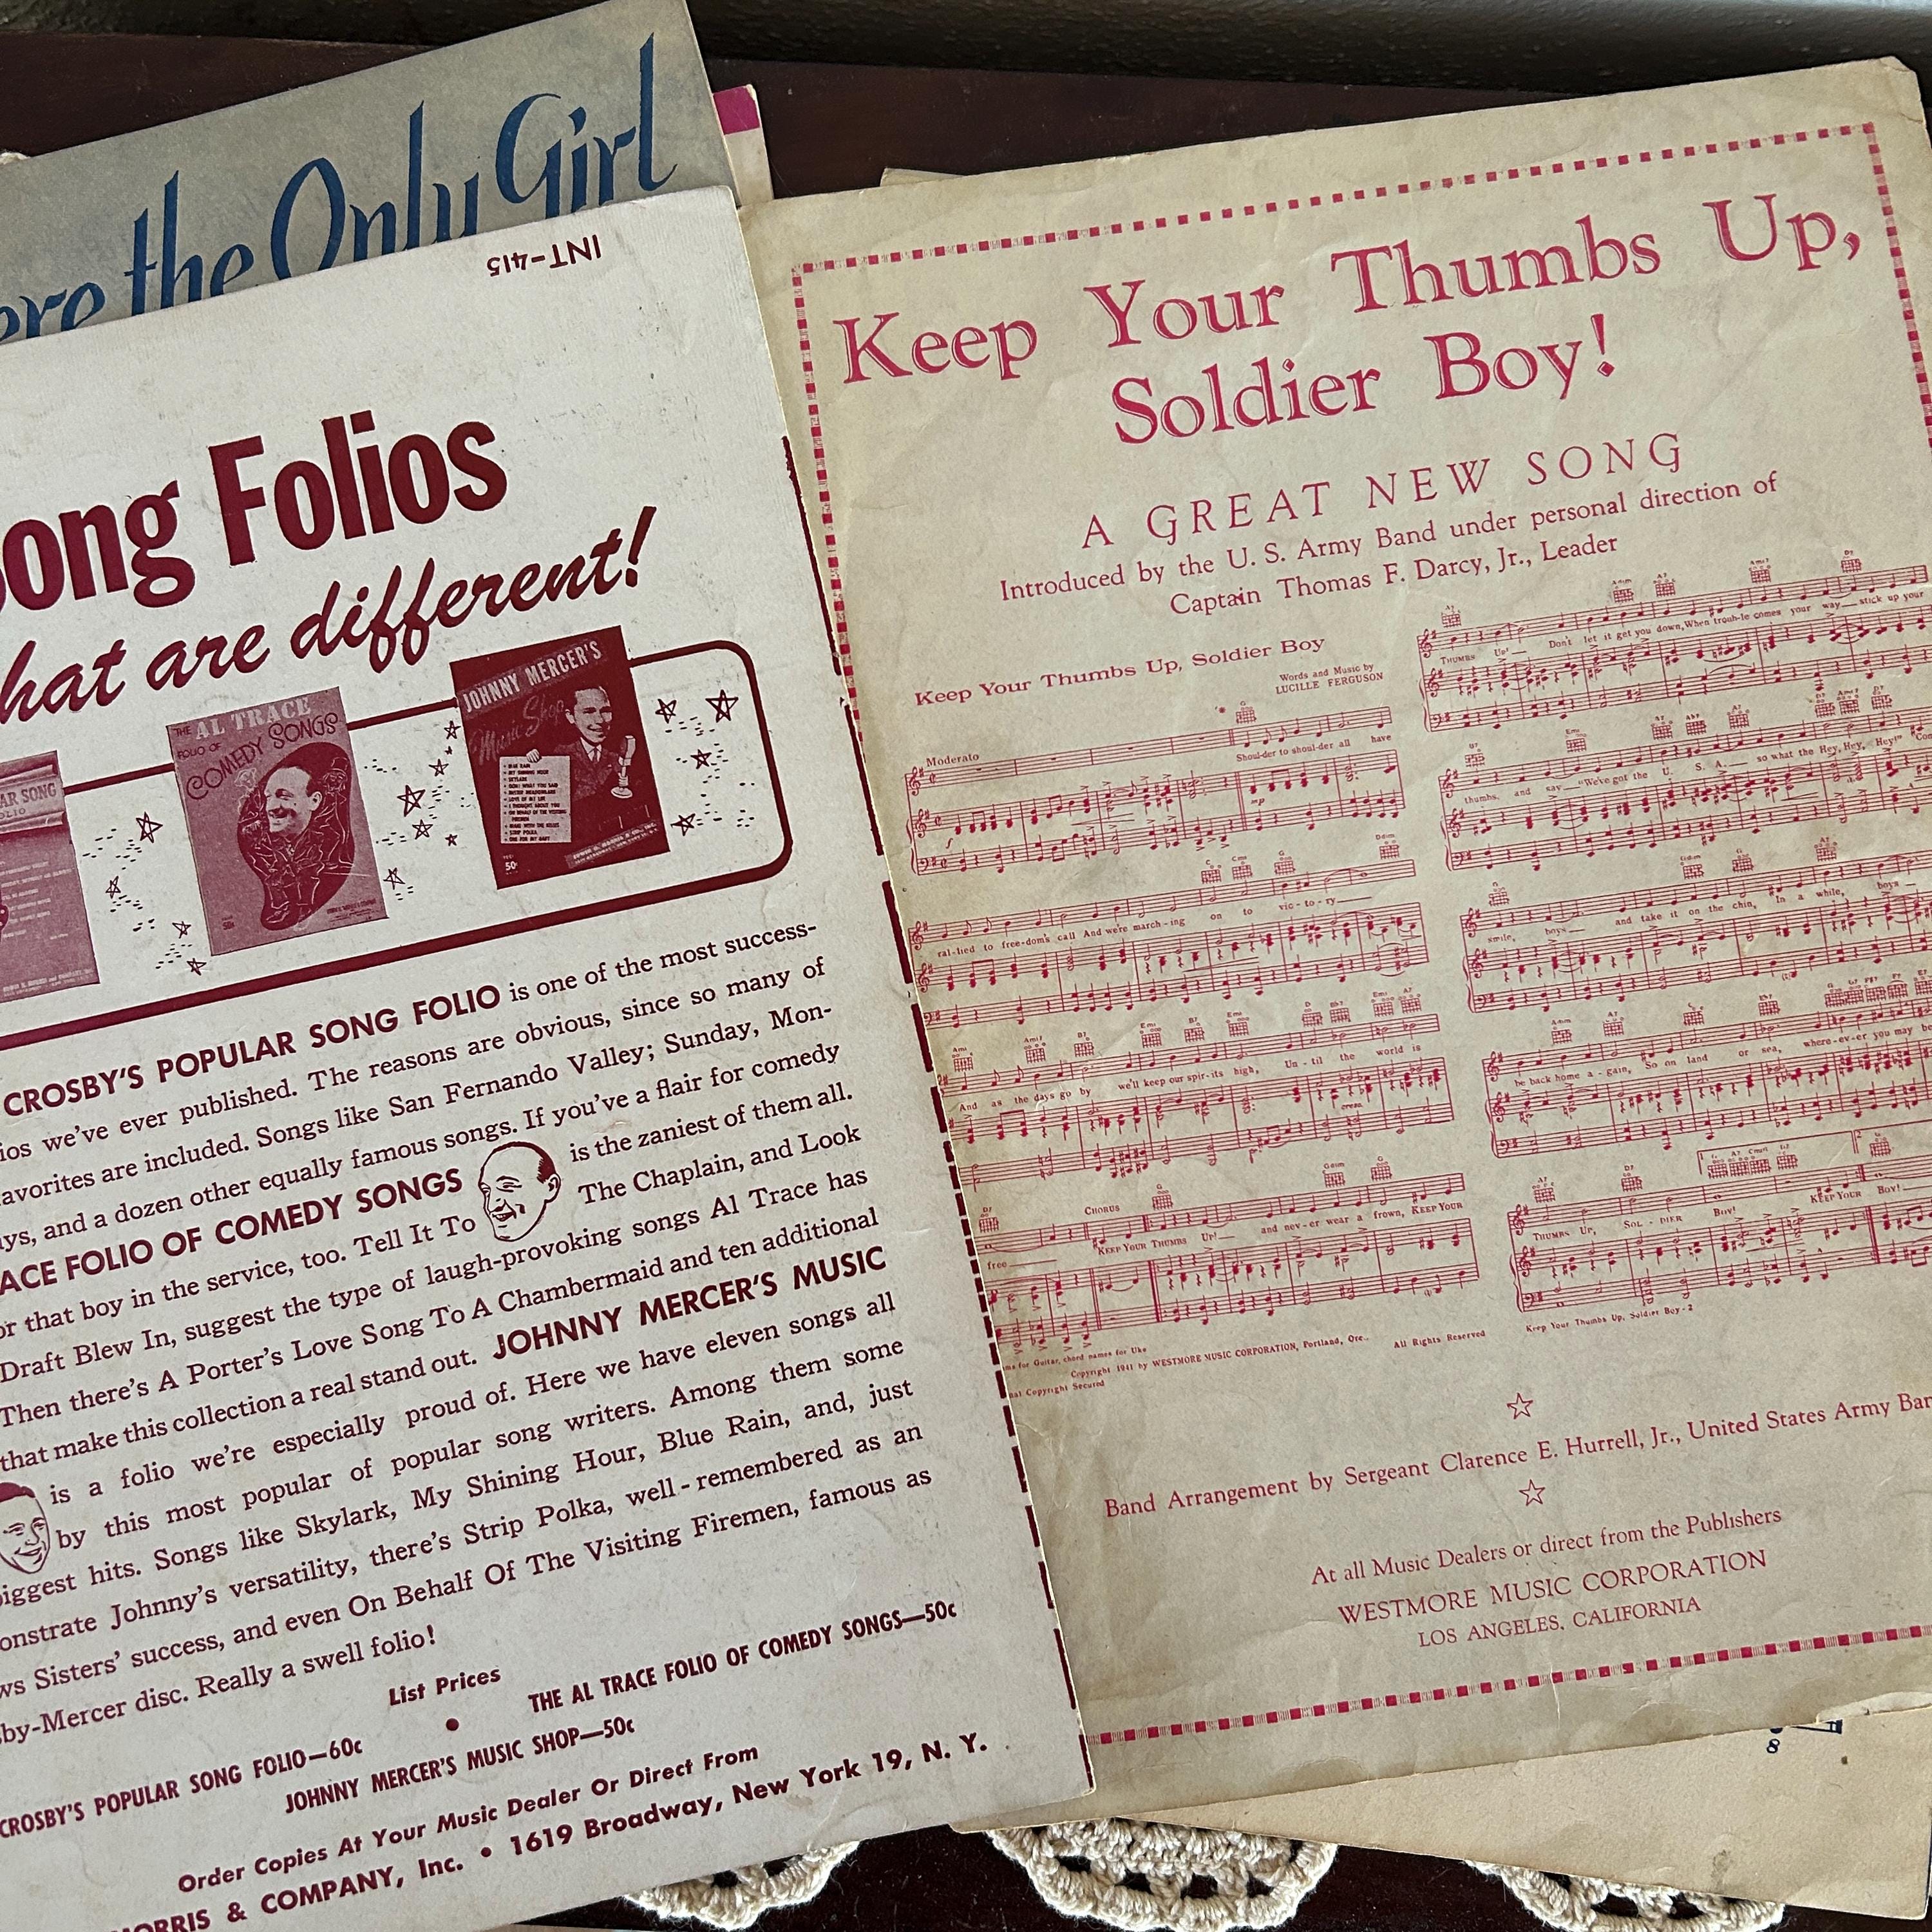 ere the Only Girl
INT-415
Song Folios
that are different!
AR SONG
THE AL TRACE
FOLIO OF
COMEDY SONGS
50c
JOHNNY MERCER'S
Music Shop
BLUE RAIN
MY SHINING HOUR
SKYLARK
LOVE OF MY LIFE
I THOUGHT ABOUT YOU
ON BEHALF OF THE VISITING
FIREMEN
STRIP POLKA
50c
CROSBY'S POPULAR SONG FOLIO is one of the most success-
ios we've ever published. The reasons are obvious, since so many of
avorites are included. Songs like San Fernando Valley; Sunday, Mon-
ays, and a dozen other equally famous songs. If you've a flair for comedy
ACE FOLIO OF COMEDY SONGS is the zaniest of them all.
or that boy in the service, too. Tell It To The Chaplain, and Look
Draft Blew In, suggest the type of laugh-provoking songs Al Trace has
Then there's A Porter's Love Song To A Chambermaid and ten additional
that make this collection a real stand out. JOHNNY MERCER'S MUSIC
is a folio we're especially proud of. Here we have eleven songs all
by this most popular of popular song writers. Among them some
biggest hits. Songs like Skylark, My Shining Hour, Blue Rain, and, just
onstrate Johnny's versatility, there's Strip Polka, well-remembered as an
ws Sisters' success, and even On Behalf Of The Visiting Firemen, famous as
by-Mercer disc. Really a swell folio!
List Prices
CROSBY'S POPULAR SONG FOLIO—60c • THE AL TRACE FOLIO OF COMEDY SONGS—50c
JOHNNY MERCER'S MUSIC SHOP—50c
Order Copies At Your Music Dealer Or Direct From
MORRIS & COMPANY, Inc. • 1619 Broadway, New York 19, N. Y.
Keep Your Thumbs Up,
Soldier Boy!
A GREAT NEW SONG
Introduced by the U. S. Army Band under personal direction of
Captain Thomas F. Darcy, Jr., Leader
Keep Your Thumbs Up, Soldier Boy
Words and Music by
LUCILLE FERGUSON
Moderato
G
Shoul-der to shoul-der all have
f
mp
C Cmi G Ddim
ral-lied to free-dom's call And we're march-ing on to vic-to-ry
Ami Ami7 B7 Emi B7 Emi D Emi A7
And as the days go by we'll keep our spir-its high, Un-til the world is
cresc.
D7 CHORUS G Gdim G
free KEEP YOUR THUMBS UP! and nev-er wear a frown, KEEP YOUR
for Guitar, chord names for Uke
Copyright 1941 by WESTMORE MUSIC CORPORATION, Portland, Ore. All Rights Reserved
nal Copyright Secured
A7 Adim A7 Ami7 D7
THUMBS UP! Don't let it get you down, When trou-ble comes your way stick up your
Emi A7 D7 Ami7 D7
thumbs, and say "We've got the U. S. A. so what the Hey, Hey, Hey!"
G Gdim G A7
smile, boys and take it on the chin, In a while, boys
A7 C
be back home a-gain, So on land or sea, where-ev-er you may be
A7 D7 G
THUMBS UP, SOL-DIER BOY! KEEP YOUR BOY!
Keep Your Thumbs Up, Soldier Boy-2
Band Arrangement by Sergeant Clarence E. Hurrell, Jr., United States Army Ban
At all Music Dealers or direct from the Publishers
WESTMORE MUSIC CORPORATION
LOS ANGELES, CALIFORNIA
8